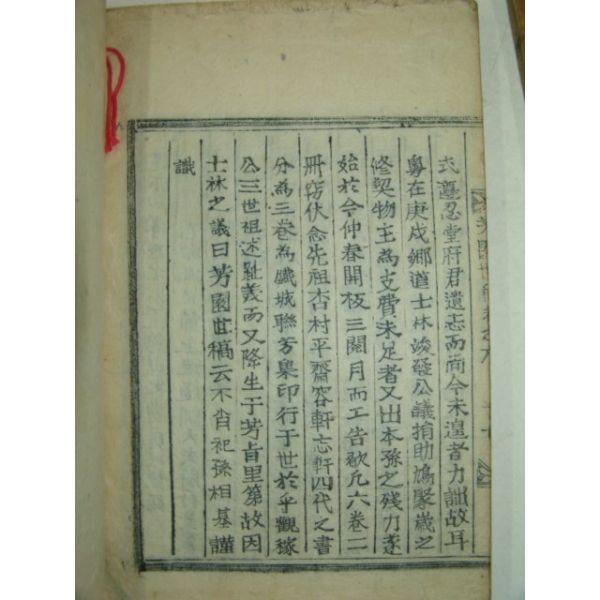 忍堂府君遺志而尙今未遑者力詘故耳
粤在庚戌鄕道士林峻發公議捐助鳩聚歲之
修契物主為支費未足者又出本孫之残力遂
始於今仲春開板三閱月而工告歇凡六卷二
冊窃伏念先祖杏村平齋容軒志軒四代之書
分為三卷為鐵城聯芳集印行于世於乎觀稼
公三世祖述趾義而又降生于芳旨里第故因
士林之議曰芳園世稿云不肖祀孫相基謹
識